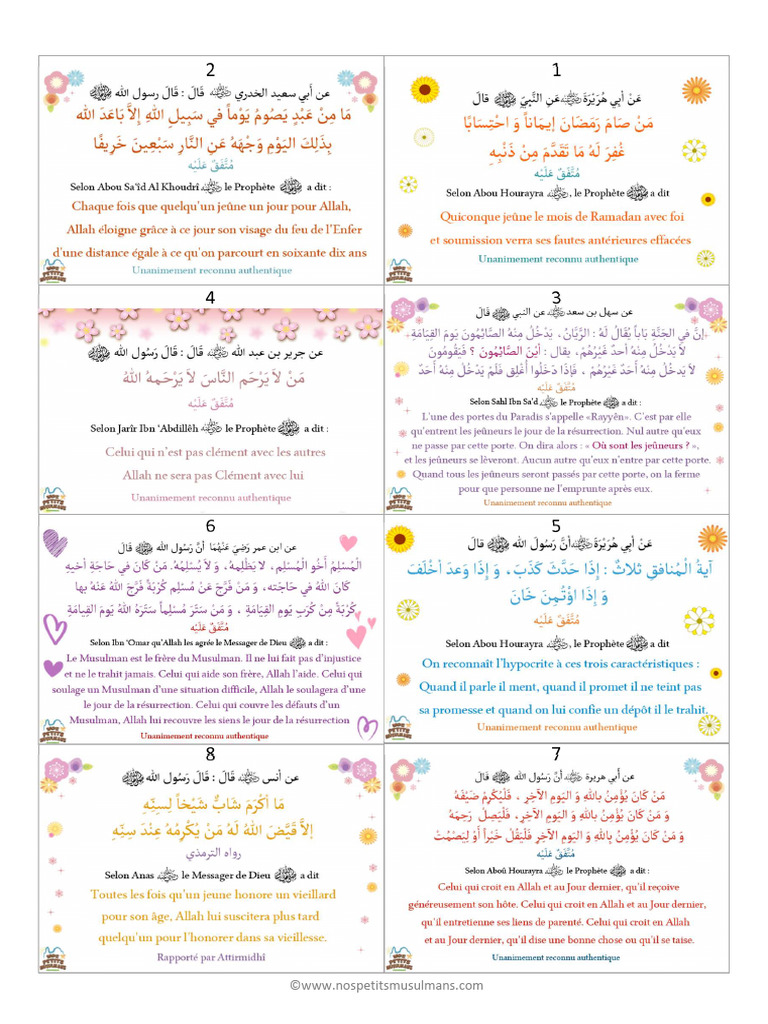 2
عن أَبي سعيد الخدري ﷺ قَالَ : قَالَ رسول الله ﷺ
مَا مِنْ عَبْدٍ يَصُومُ يَوْماً في سَبِيلِ اللهِ إِلاَّ بَاعَدَ الله
بِذَلِكَ اليَوْمِ وَجْهَهُ عَنِ النَّارِ سَبْعِينَ خَرِيفًا
مُتَّفَقٌ عَلَيْه
Selon Abou Sa'îd Al Khoudrî le Prophète ﷺ a dit :
Chaque fois que quelqu'un jeûne un jour pour Allah,
Allah éloigne grâce à ce jour son visage du feu de l'Enfer
d'une distance égale à ce qu'on parcourt en soixante dix ans
Unanimement reconnu authentique
1
عَنْ أبي هُرَيْرَةَ عَنِ النَّبيّ ﷺ قالَ
مَنْ صَامَ رَمَضَانَ إيمَاناً وَ احْتِسَابًا
غُفِرَ لَهُ مَا تَقَدَّمَ مِنْ ذَنْبِهِ
مُتَّفَقٌ عَلَيْه
Selon Abou Hourayra , le Prophète ﷺ a dit
Quiconque jeûne le mois de Ramadan avec foi
et soumission verra ses fautes antérieures effacées
Unanimement reconnu authentique
4
عن جرير بن عبد الله قَالَ : قَالَ رَسُول الله ﷺ
مَنْ لاَ يَرْحَمِ النَّاسَ لاَ يَرْحَمهُ اللهُ
مُتَّفَقٌ عَلَيْه
Selon Jarîr Ibn 'Abdillêh le Prophète ﷺ a dit :
Celui qui n'est pas clément avec les autres
Allah ne sera pas Clément avec lui
Unanimement reconnu authentique
3
عن سهل بن سعد عن النبي ﷺ قَالَ
إنَّ في الجَنَّةِ بَاباً يُقَالُ لَهُ : الرَّيَّانُ، يَدْخُلُ مِنْهُ الصَّائِمُونَ يَومَ القِيَامَةِ
لاَ يَدْخُلُ مِنْهُ أحدٌ غَيْرُهُمْ، يقال : أيْنَ الصَّائِمُونَ ؟ فَيَقُومُونَ
لاَ يَدخُلُ مِنْهُ أَحَدٌ غَيْرُهُمْ ، فَإذَا دَخَلُوا أُغْلِقَ فَلَمْ يَدْخُلْ مِنْهُ أَحَدٌ
مُتَّفَقٌ عَلَيْه
Selon Sahl Ibn Sa'd le Prophète ﷺ a dit :
L'une des portes du Paradis s'appelle «Rayyên». C'est par elle
qu'entrent les jeûneurs le jour de la résurrection. Nul autre qu'eux
ne passe par cette porte. On dira alors : « Où sont les jeûneurs ? »,
et les jeûneurs se lèveront. Aucun autre qu'eux n'entre par cette porte.
Quand tous les jeûneurs seront passés par cette porte, on la ferme
pour que personne ne l'emprunte après eux.
Unanimement reconnu authentique
6
عن ابن عمر رَضِيَ عَنْهُمَا أنَّ رَسُول الله ﷺ قَالَ
المُسْلِمُ أَخُو المُسْلِمِ، لا يَظْلِمُهُ، وَ لاَ يُسْلِمُهُ. مَنْ كَانَ في حَاجَةِ أخِيهِ
كَانَ اللهُ في حَاجَتِه، وَ مَنْ فَرَّجَ عَنْ مُسْلِمٍ كُرْبَةً فَرَّجَ اللهُ عَنْهُ بها
كُرْبَةً مِنْ كُرَبِ يَومِ القِيَامَةِ ، وَ مَنْ سَتَرَ مُسْلِماً سَتَرَهُ اللهُ يَومَ القِيَامَةِ
مُتَّفَقٌ عَلَيْه
Selon Ibn 'Omar qu'Allah les agrée le Messager de Dieu ﷺ a dit :
Le Musulman est le frère du Musulman. Il ne lui fait pas d'injustice
et ne le trahit jamais. Celui qui aide son frère, Allah l'aide. Celui qui
soulage un Musulman d'une situation difficile, Allah le soulagera d'une
le jour de la résurrection. Celui qui couvre les défauts d'un
Musulman, Allah lui recouvre les siens le jour de la résurrection
Unanimement reconnu authentique
5
عَنْ أبي هُرَيْرَةَ أنَّ رَسُولَ الله ﷺ قالَ
آيةُ الْمُنافقِ ثلاثٌ : إذَا حَدَّثَ كَذَبَ، وَ إذَا وَعدَ أخْلَفَ
وَ إذَا اؤْتُمِنَ خَانَ
مُتَّفَقٌ عَلَيْه
Selon Abou Hourayra , le Prophète ﷺ a dit
On reconnaît l'hypocrite à ces trois caractéristiques :
Quand il parle il ment, quand il promet il ne teint pas
sa promesse et quand on lui confie un dépôt il le trahit.
Unanimement reconnu authentique
8
عن أنس قَالَ : قَالَ رَسُول الله ﷺ
مَا أكْرَمَ شَابٌّ شَيْخاً لِسِنِّهِ
إلاَّ قَيَّضَ اللهُ لَهُ مَنْ يُكْرِمُهُ عِنْدَ سِنِّه
رواه الترمذي
Selon Anas le Messager de Dieu ﷺ a dit
Toutes les fois qu'un jeune honore un vieillard
pour son âge, Allah lui suscitera plus tard
quelqu'un pour l'honorer dans sa vieillesse.
Rapporté par Attirmidhî
7
عن أَبي هريرة أنَّ رَسُول الله ﷺ قَالَ
مَنْ كَانَ يُؤْمِنُ بِاللهِ وَ اليَومِ الآخِرِ ، فَلْيُكْرِمْ ضَيْفَهُ
وَ مَنْ كَانَ يُؤْمِنُ بِاللهِ وَ اليَومِ الآخِرِ، فَلْيَصِلْ رَحِمَهُ
وَ مَنْ كَانَ يُؤْمِنُ بِاللهِ وَ اليَومِ الآخِرِ فَلْيَقُلْ خَيْراً أَوْ لِيَصْمُتْ
مُتَّفَقٌ عَلَيْه
Selon Aboû Hourayra le Prophète ﷺ a dit :
Celui qui croit en Allah et au Jour dernier, qu'il reçoive
généreusement son hôte. Celui qui croit en Allah et au Jour dernier,
qu'il entretienne ses liens de parenté. Celui qui croit en Allah
et au Jour dernier, qu'il dise une bonne chose ou qu'il se taise.
Unanimement reconnu authentique
©www.nospetitsmusulmans.com